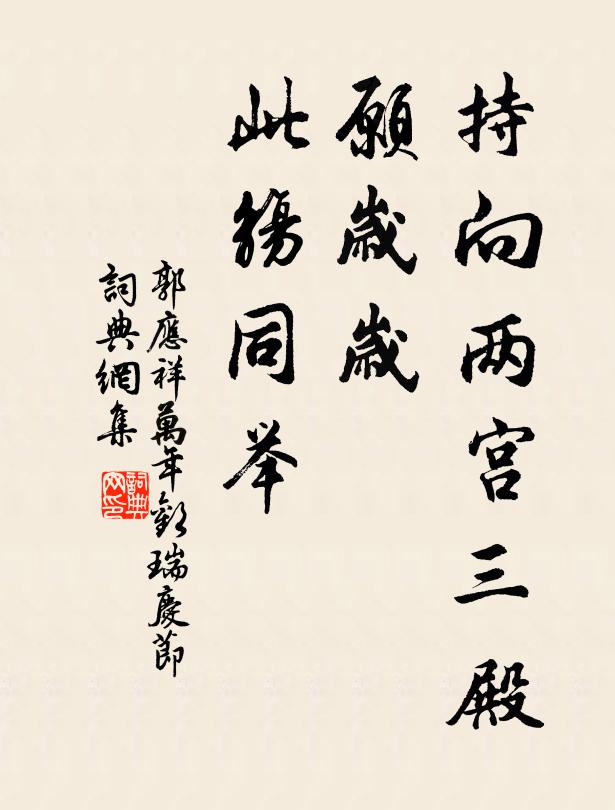 持向两宫三殿
願歳歳
此觴同举
郭應祥萬年歡瑞慶節
詞典網集
詞典网印